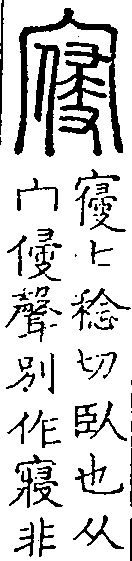 寑
寑七稔切臥也从
宀侵聲別作寢非